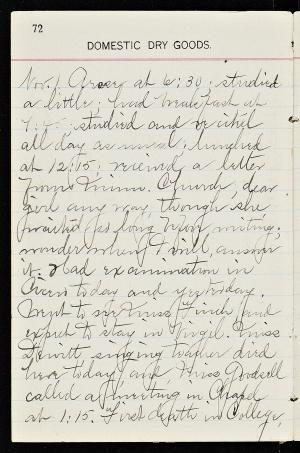 72
DOMESTIC DRY GOODS.
Nov. 1. Arose at 6:30; studied
a little; had breakfast at
7:45; studied and recited
all day as usual; lunched
at 12:15; received a letter
from Minnie Church, dear
girl any way, though she
waited so long before writing.
wonder when I will answer
it. Had examination in
Cicero today and yesterday.
Went to see Miss Finch, and
expect to stay in Virgil. Miss
singing teacher died
here today, and Miss Goodsell
called a meeting in Chapel
at 1:15. First death in College,